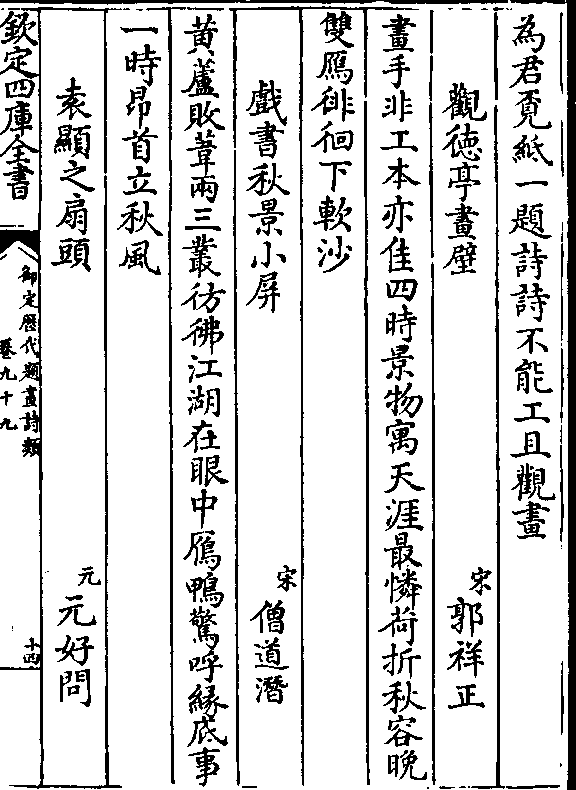 為君覓紙一題詩詩不能工且觀畫
觀徳亭畫壁
宋
郭祥正
畫手非工本亦佳四時景物寓天涯最憐荷折秋容晩
雙鴈徘徊下軟沙
戲書秋景小屏
宋
僧道潛
黄蘆敗葦兩三叢彷彿江湖在眼中鴈鴨驚呼縁底事
一時昂首立秋風
袁顯之扇頭
元
元好問
欽定四庫全書
御定歴代題畫詩類
卷九十九
十四